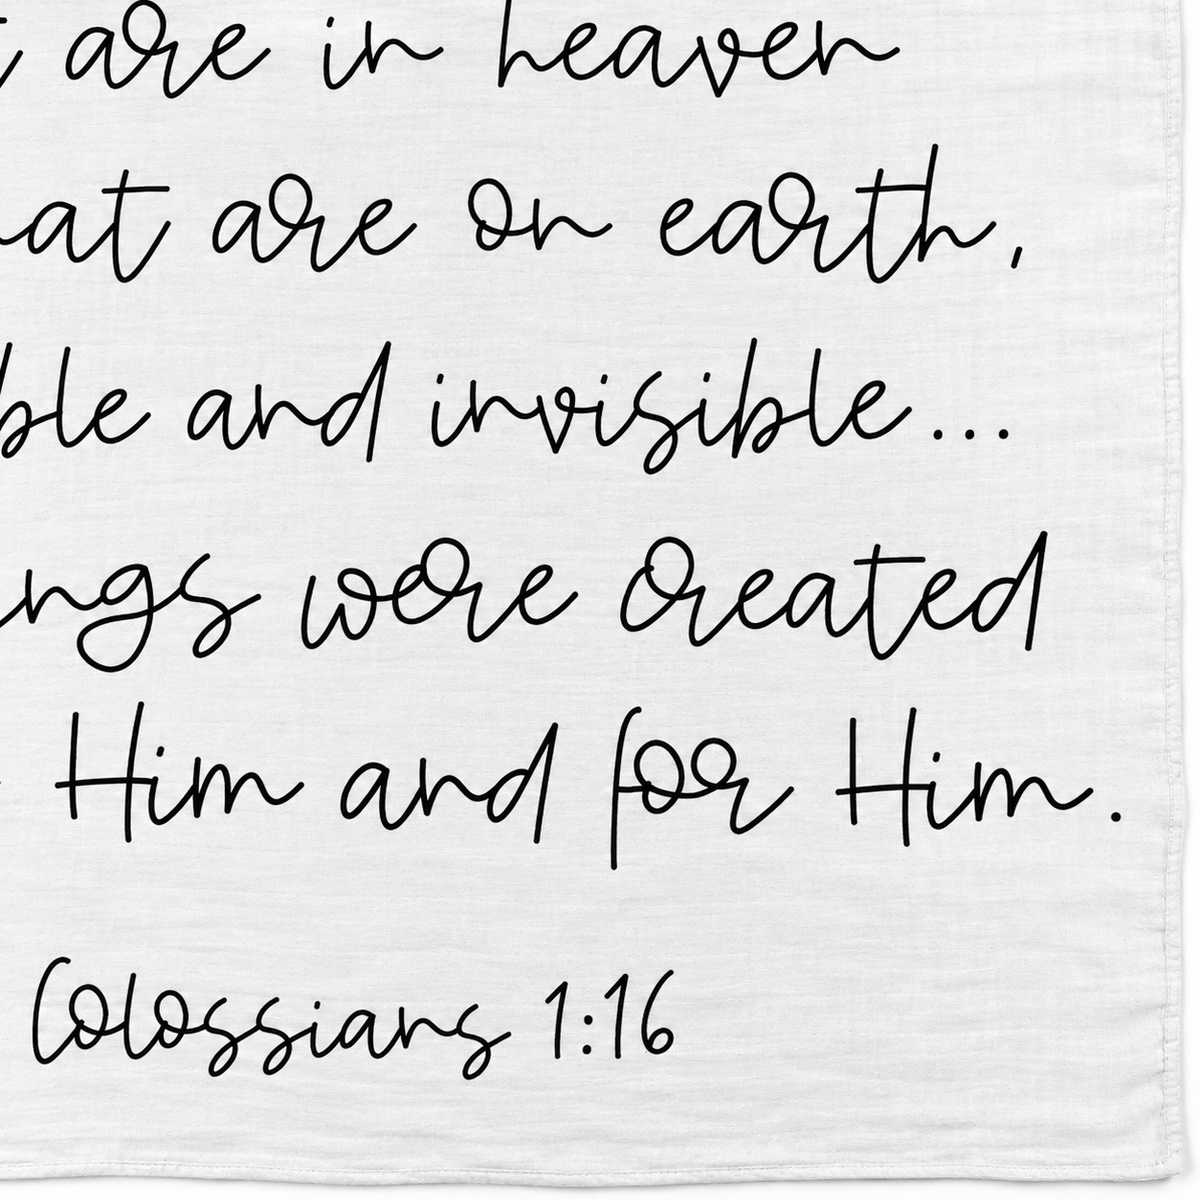 t are in heaven
at are on earth,
ble and invisible...
ngs were created
Him and for Him.
Colossians 1:16